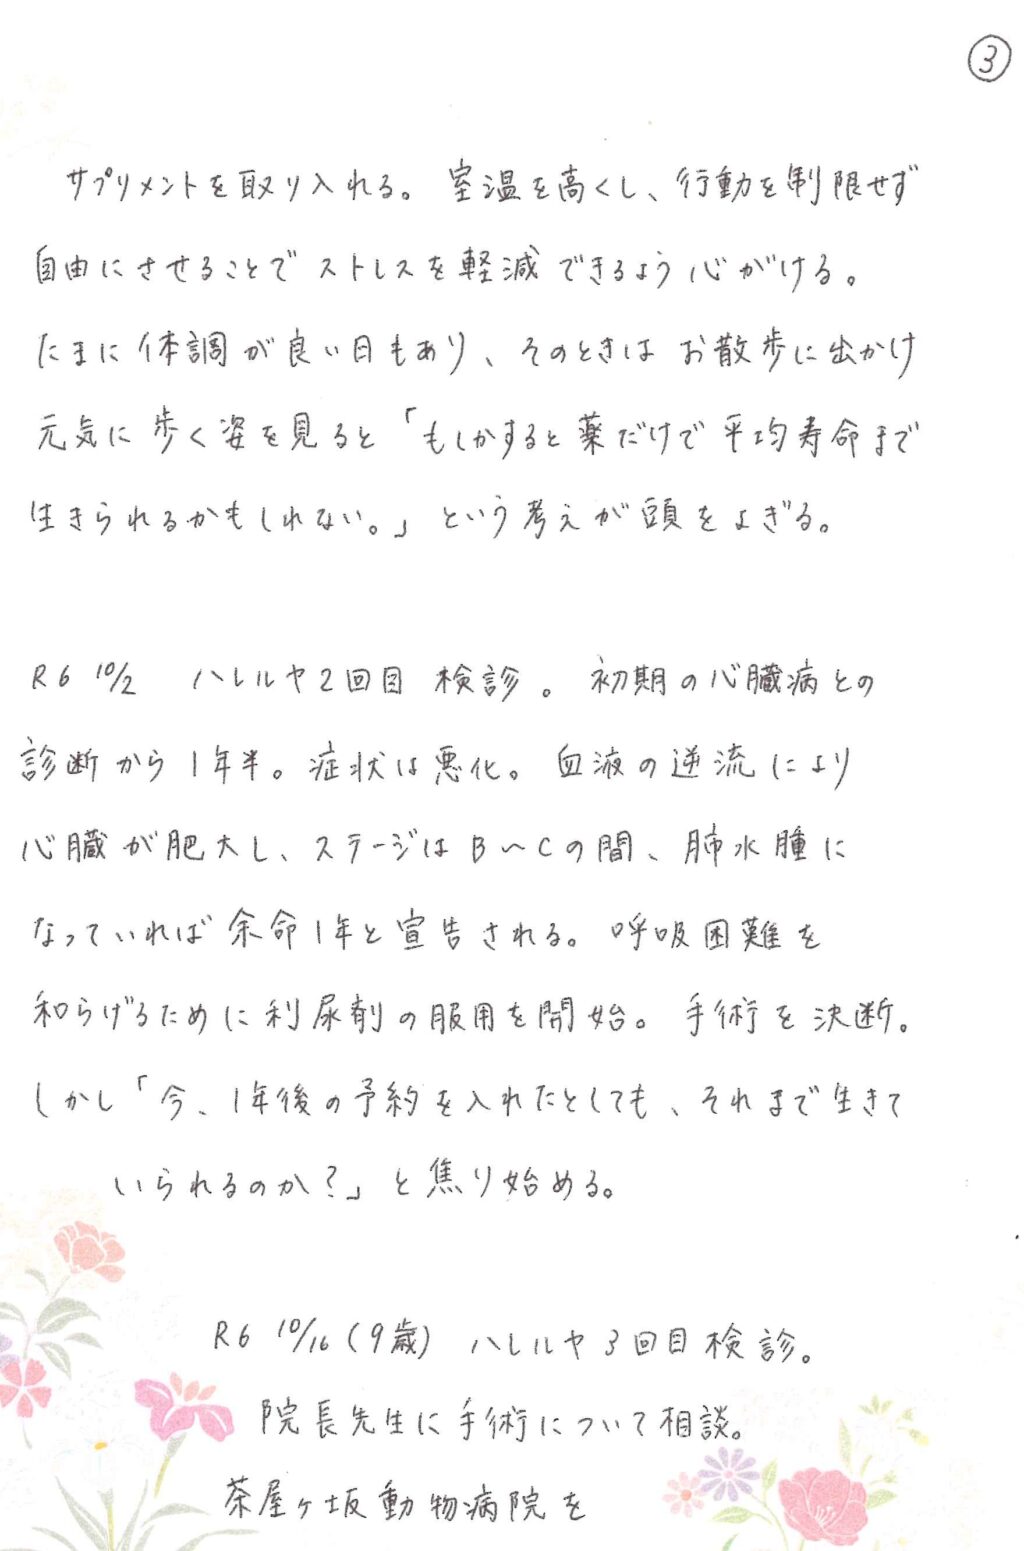 ③
サプリメントを取り入れる。室温を高くし、行動を制限せず
自由にさせることでストレスを軽減できるよう心がける。
たまに体調が良い日もあり、そのときはお散歩に出かけ
元気に歩く姿を見ると「もしかすると薬だけで平均寿命まで
生きられるかもしれない。」という考えが頭をよぎる。
R6 10/2 ハレルヤ2回目検診。初期の心臓病との
診断から1年半。症状は悪化。血液の逆流により
心臓が肥大し、ステージはB～Cの間、肺水腫に
なっていれば余命1年と宣告される。呼吸困難を
和らげるために利尿剤の服用を開始。手術を決断。
しかし「今、1年後の予約を入れたとしても、それまで生きて
いられるのか?」と焦り始める。
R6 10/16(9歳) ハレルヤ3回目検診。
院長先生に手術について相談。
茶屋ヶ坂動物病院を